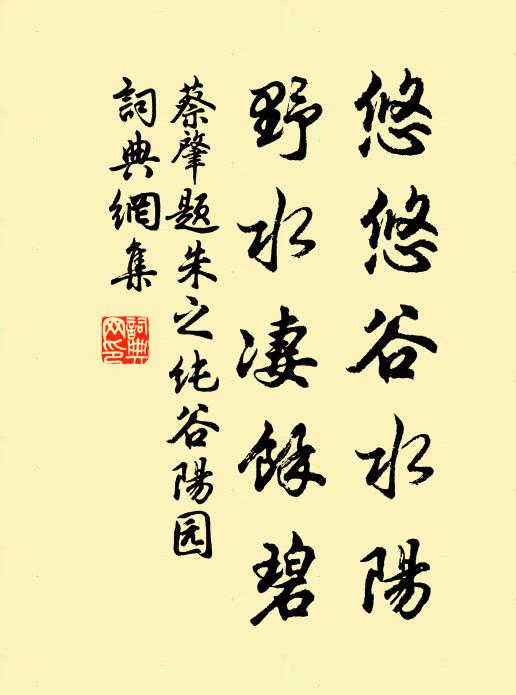 悠悠谷水陽
野水凄餘碧
蔡肇題朱之纯谷陽园
詞典網集
詞典网印